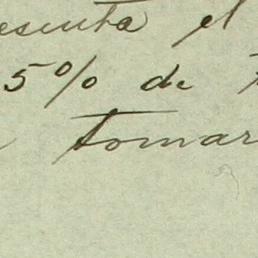 esenta el
5% de
tomar